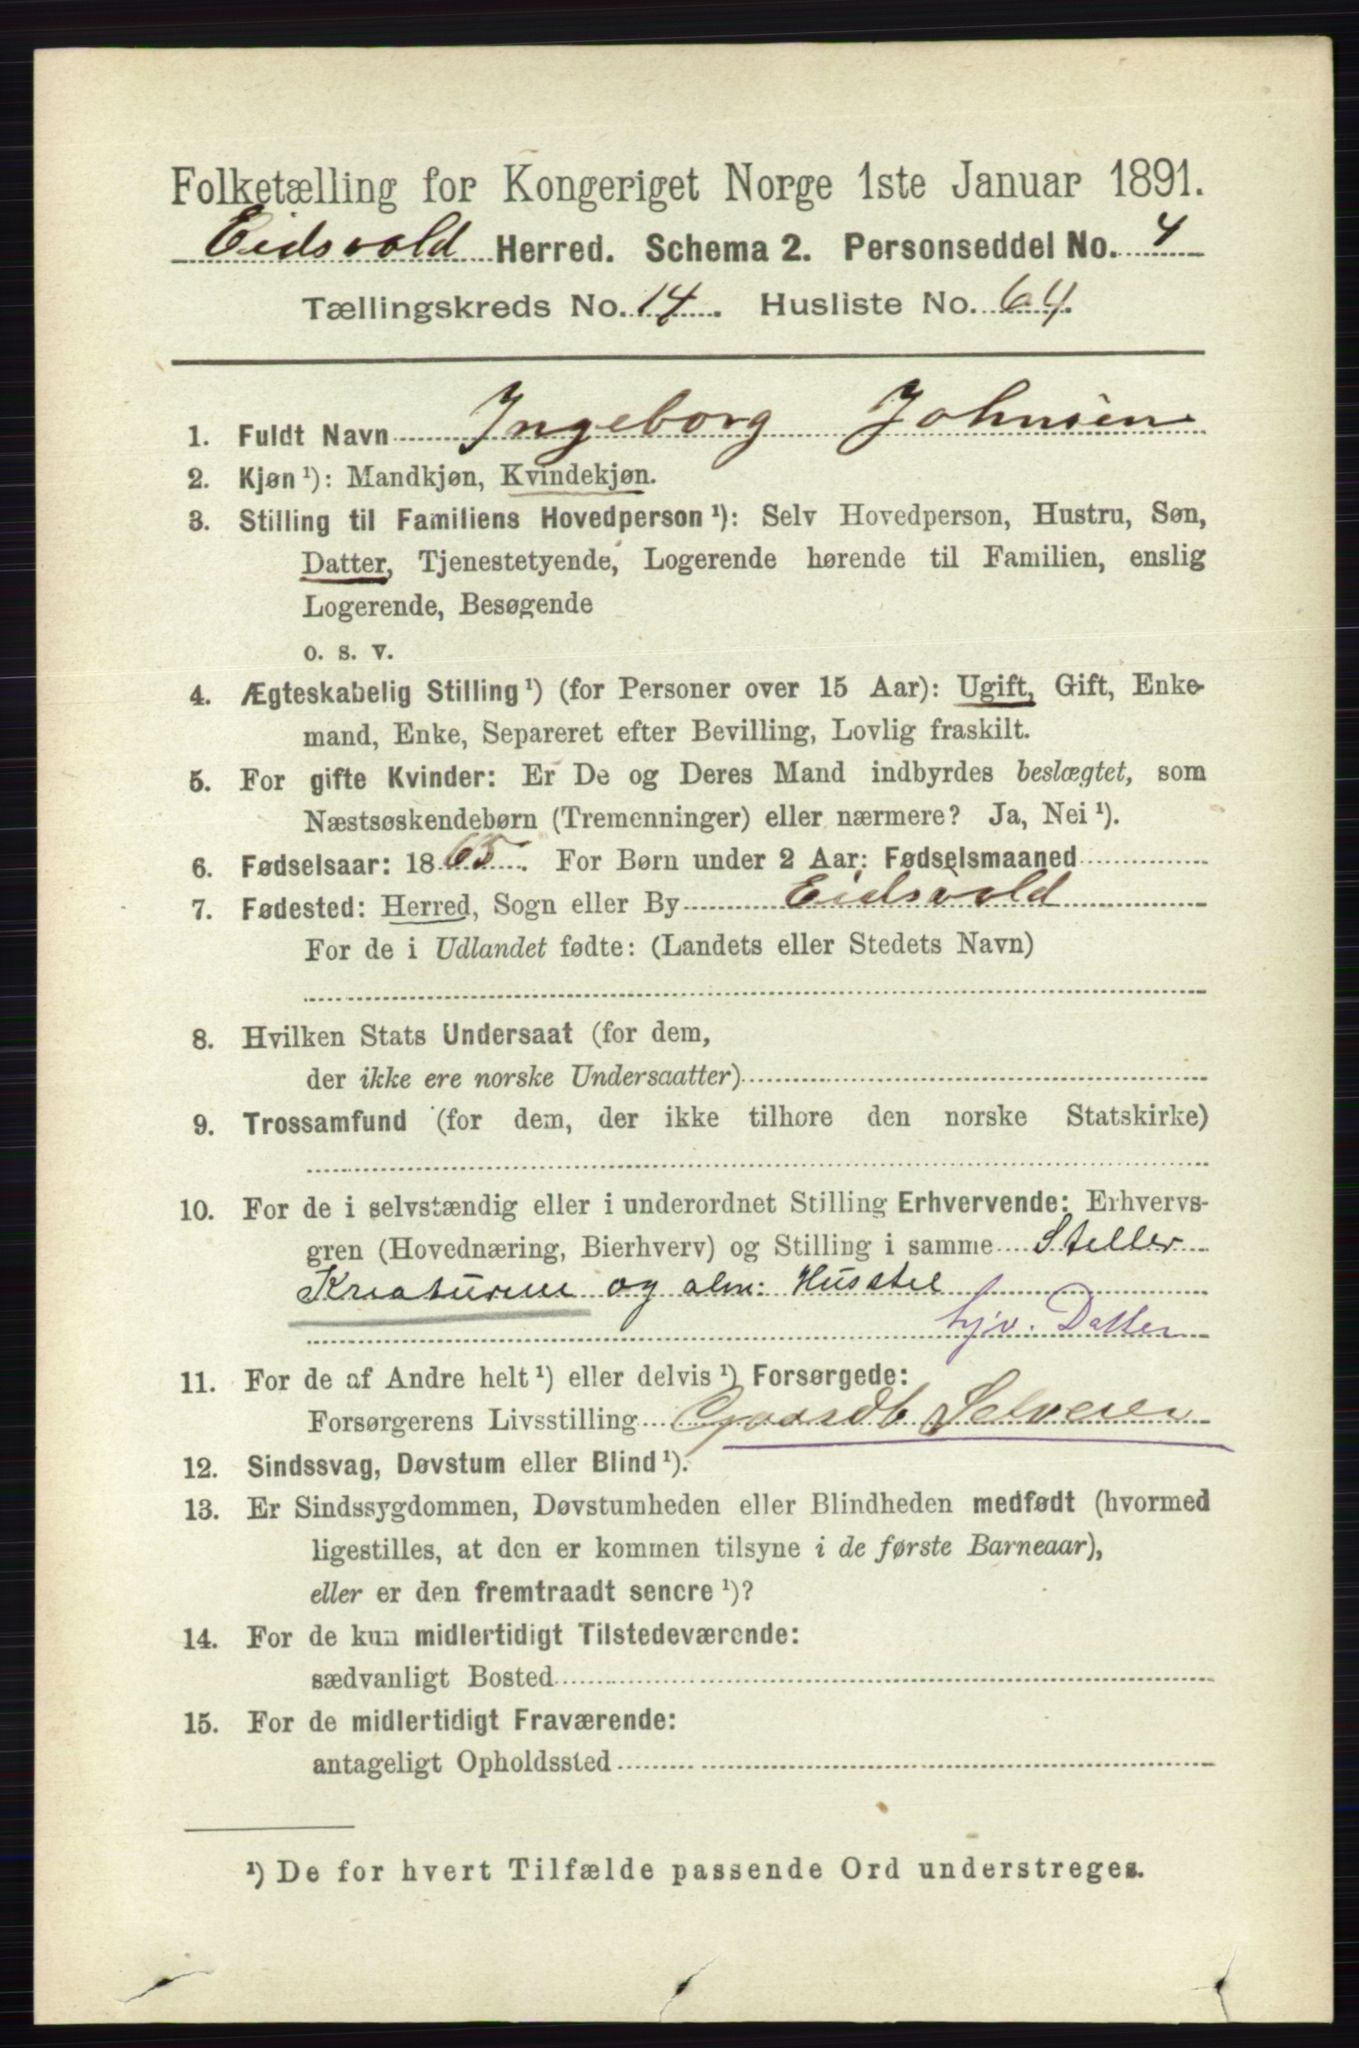 Folketælling for Kongeriget Norge 1ste Januar 1891.
Eidsvold Herred. Schema 2. Personseddel No. 4
Tællingskreds No. 14. Husliste No. 64.
1. Fuldt Navn Ingeborg Johnsen
2. Kjøn ¹): Mandkjøn, Kvindekjøn.
3. Stilling til Familiens Hovedperson ¹): Selv Hovedperson, Hustru, Søn,
Datter, Tjenestetyende, Logerende hørende til Familien, enslig
Logerende, Besøgende
o. s. v.
4. Ægteskabelig Stilling ¹) (for Personer over 15 Aar): Ugift, Gift, Enke-
mand, Enke, Separeret efter Bevilling, Lovlig fraskilt.
5. For gifte Kvinder: Er De og Deres Mand indbyrdes beslægtet, som
Næstsøskendebørn (Tremenninger) eller nærmere? Ja, Nei ¹).
6. Fødselsaar: 1865. For Børn under 2 Aar: Fødselsmaaned
7. Fødested: Herred, Sogn eller By Eidsvold
For de i Udlandet fødte: (Landets eller Stedets Navn)
8. Hvilken Stats Undersaat (for dem,
der ikke ere norske Undersaatter)
9. Trossamfund (for dem, der ikke tilhøre den norske Statskirke)
10. For de i selvstændig eller i underordnet Stilling Erhvervende: Erhvervs-
gren (Hovednæring, Bierhverv) og Stilling i samme Steller
Kreaturene og alm: Husstel
hjv. Datter
11. For de af Andre helt ¹) eller delvis ¹) Forsørgede:
Forsørgerens Livsstilling Gaardb Selveier
12. Sindssvag, Døvstum eller Blind ¹).
13. Er Sindssygdommen, Døvstumheden eller Blindheden medfødt (hvormed
ligestilles, at den er kommen tilsyne i de første Barneaar),
eller er den fremtraadt senere ¹)?
14. For de kun midlertidigt Tilstedeværende:
sædvanligt Bosted
15. For de midlertidigt Fraværende:
antageligt Opholdssted
¹) De for hvert Tilfælde passende Ord understreges.